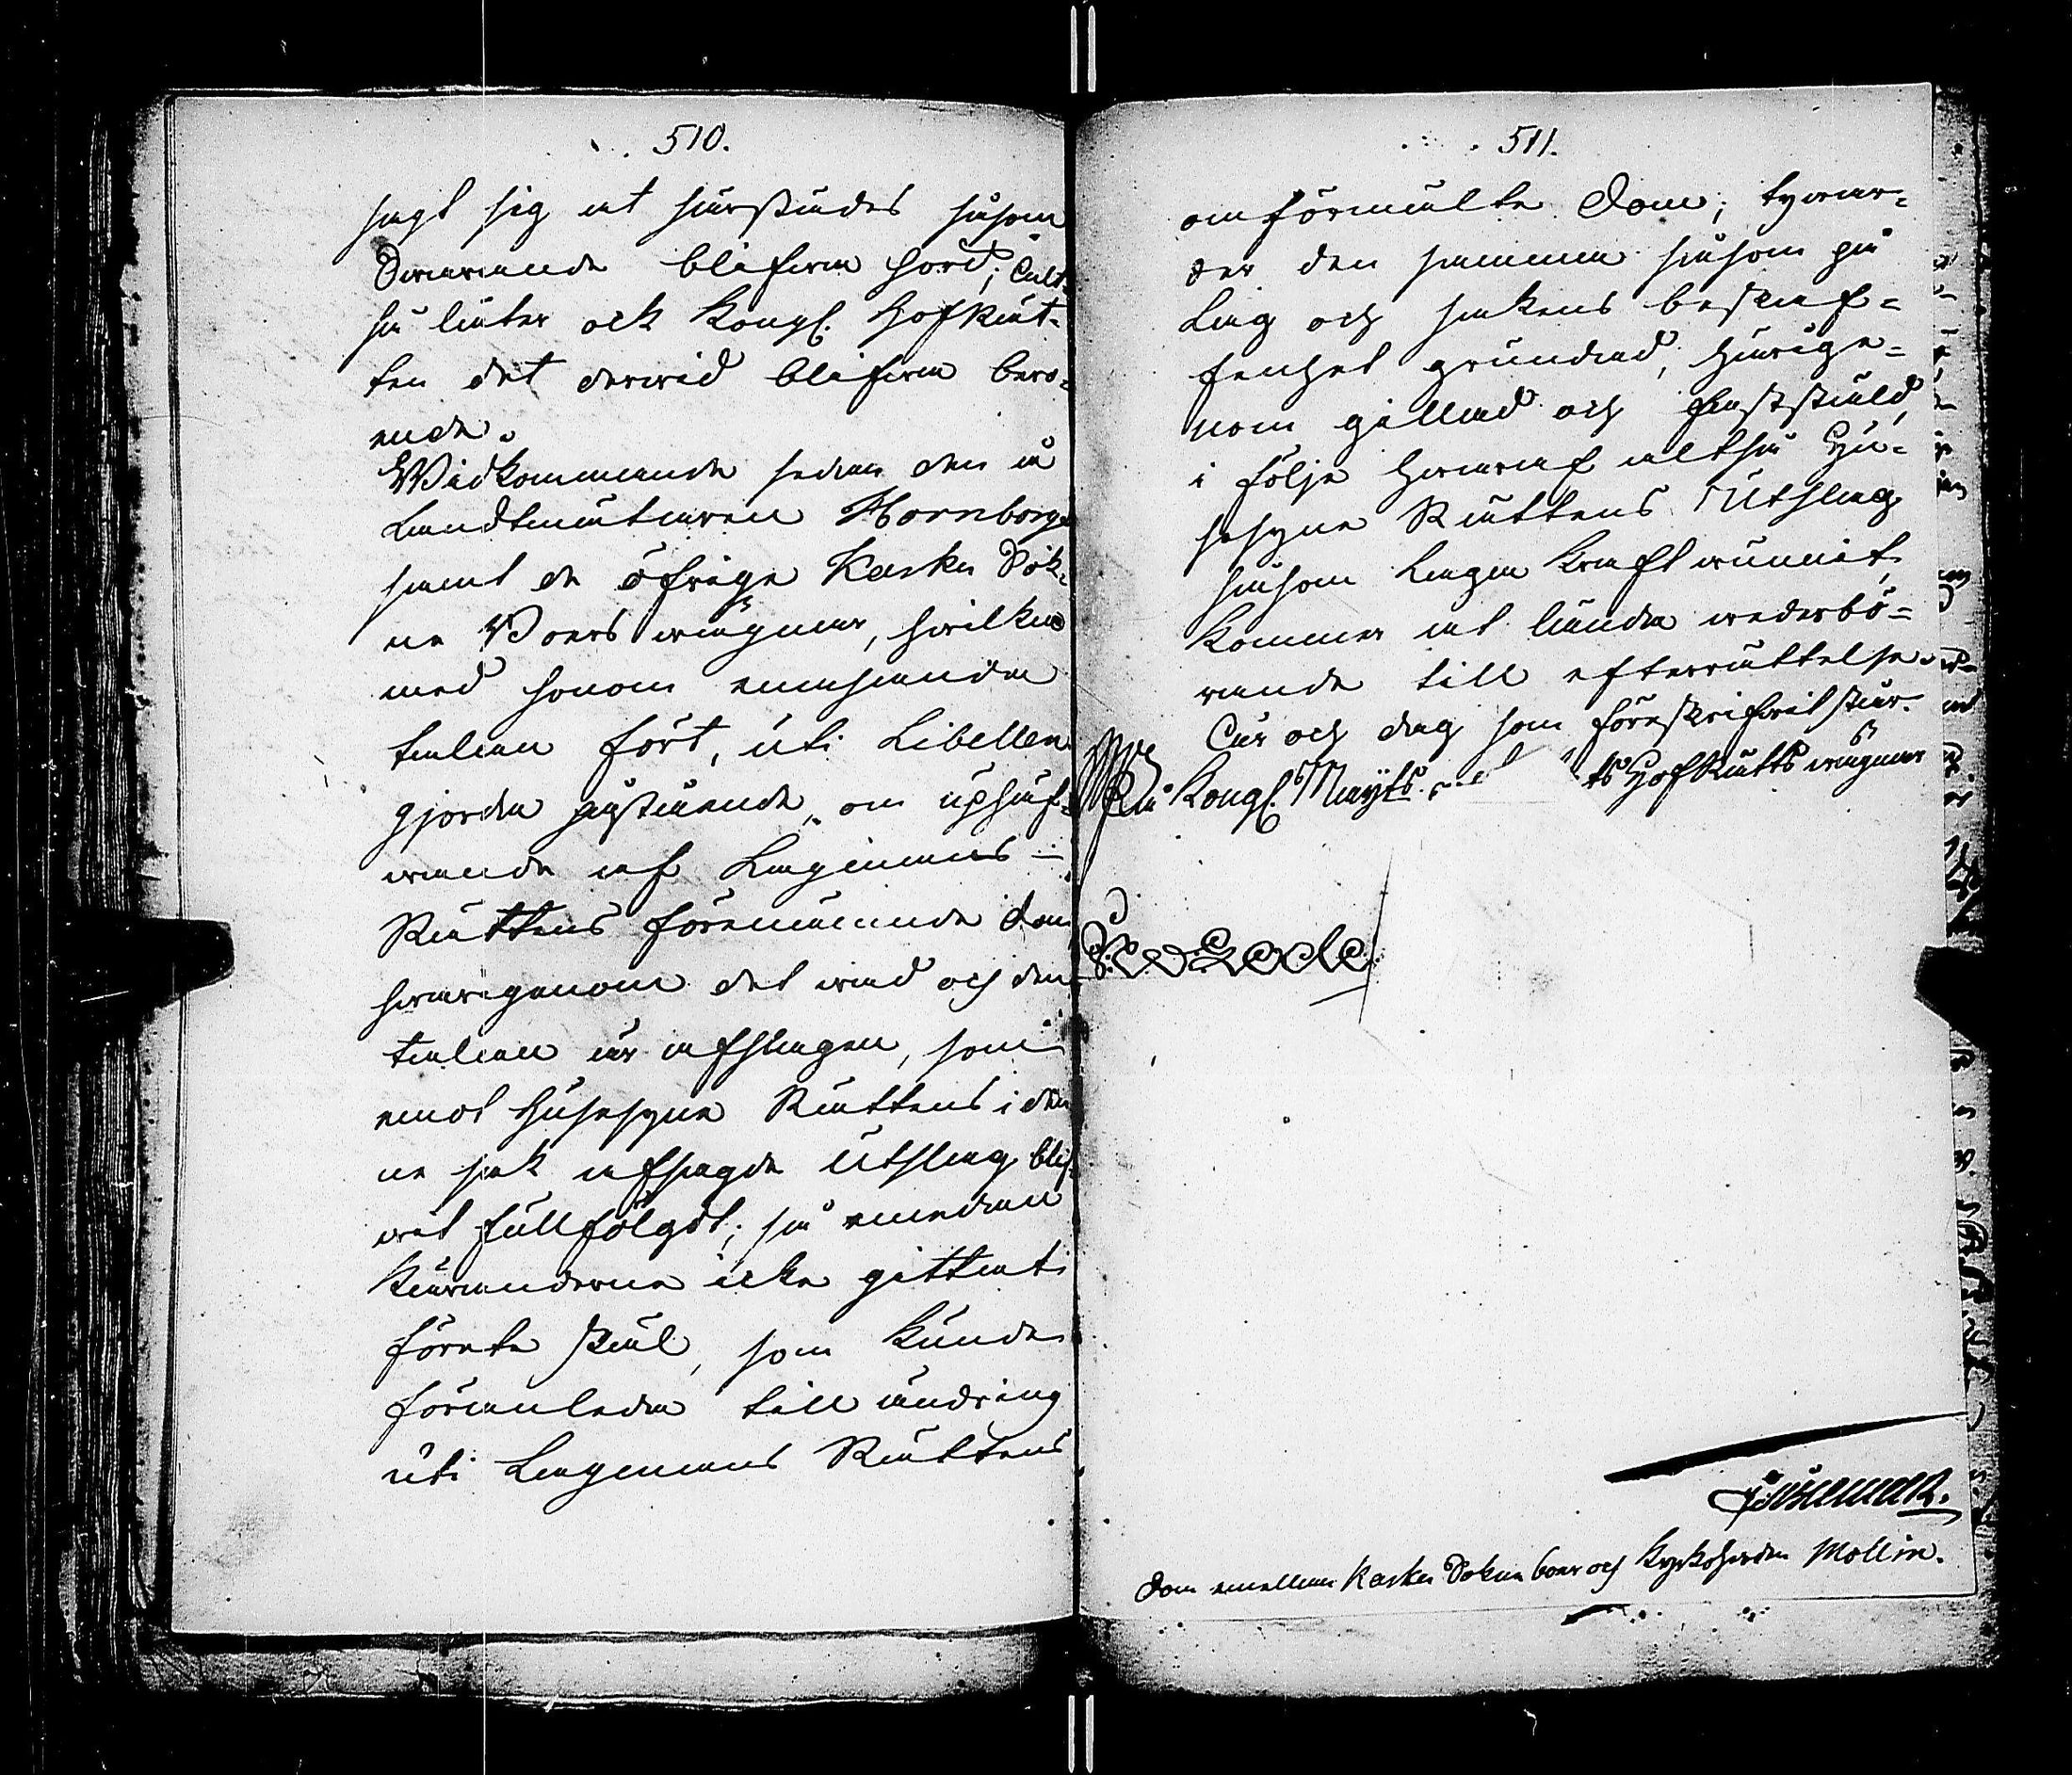 510.
sagt sig at härstädes såsom
Swarande blifwa hörd; Alt-
så låter ock Kongl. HofRät-
ten det derwid blifwa bero-
ende.
Widkommande sedan den å
Landtmätaren Hornborgs
samt de öfrige Kasku Sok-
ne Boers wägnar, hwilka
med honom enahanda
talan fört, uti Libellen
gjorde påstående, om uphäf-
wande af Lagmans-
Rättens förenämnde dom
hwarigenom det wad och den
talan är afslagen, som
emot Husesyne Rättens i den-
ne sak afsagde Utslag blif-
wit fullfölgdt; så emedan
Käranderne icke gittat
förete skäl, som kunde
föranleda till ändring
uti Lagmans Rättens
511.
omförmälte Dom; tywar-
der den samma såsom på
Lag och sakens beskaf-
fenhet grundad, härige-
nom gillad och faststäld,
i följe hwaraf altså Hu-
sesyne Rättens Utslag
såsom Laga Kraft wunnit,
kommer at lända wederbö-
rande till efterrättelse.
Åhr och dag som föreskrifwit står.
På Kongl. Mayts ts HofRätts wägnar
Dom emellan Kasku Sokne boer och Kyrkoherden Mollin.